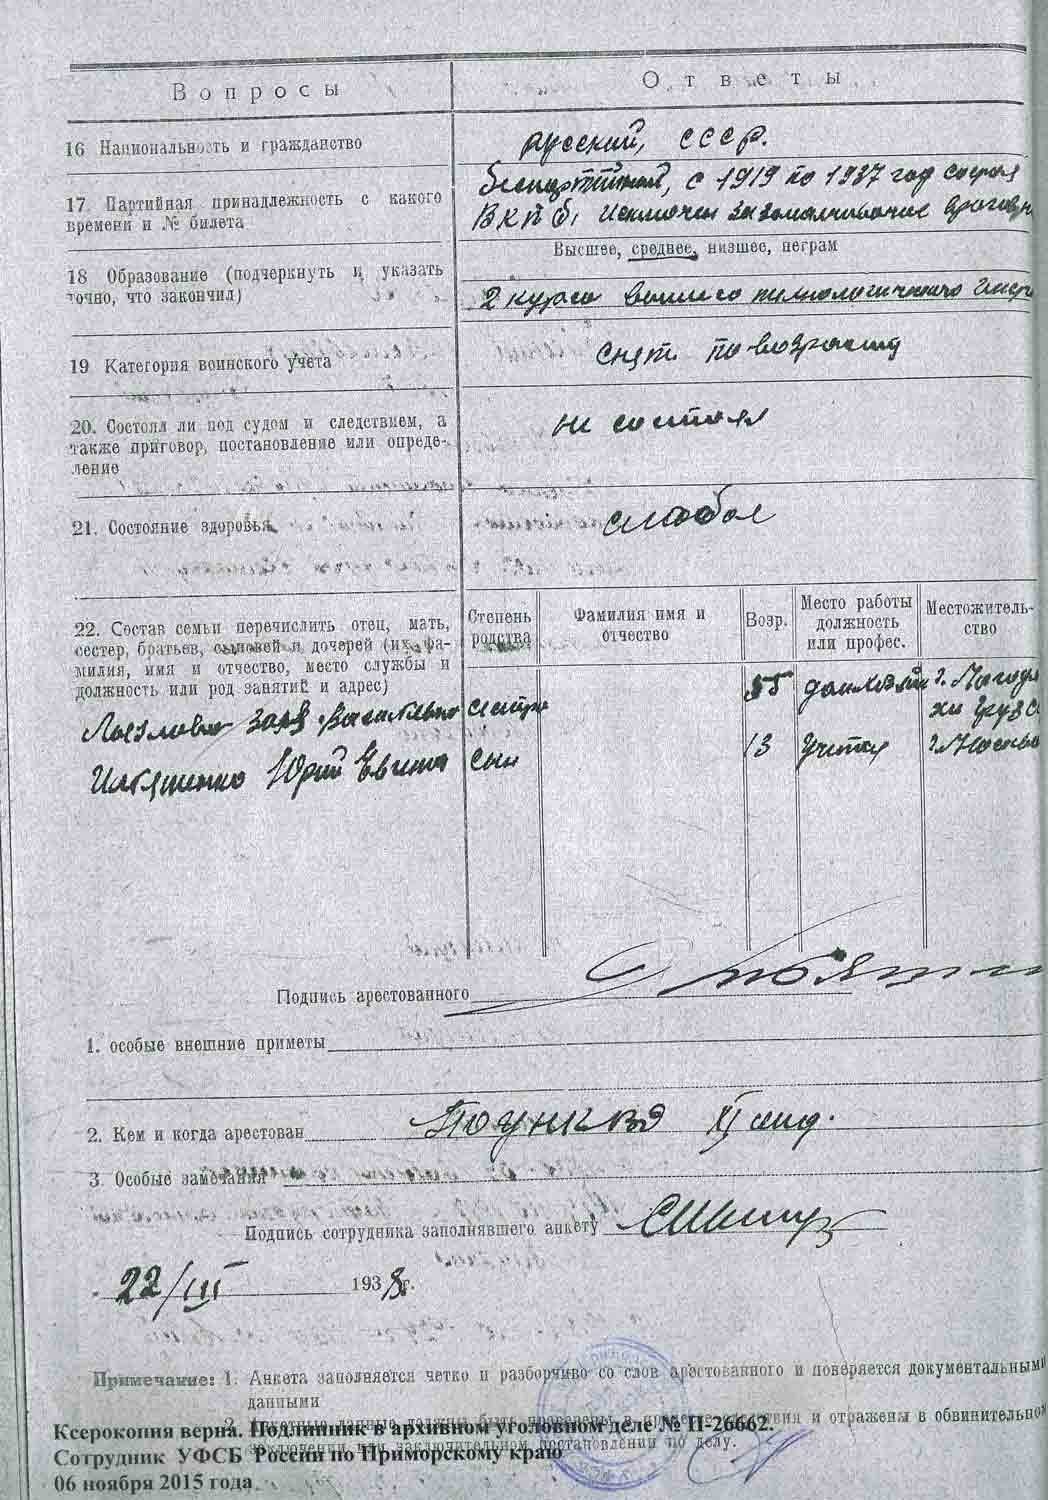 Вопросы
Ответы
16 Национальность и гражданство
русский, СССР.
17. Партийная принадлежность с какого
времени и № билета
беспартийный, с 1919 по 1937 год состоял
ВКПб, исключен за замалчивание
18 Образование (подчеркнуть и указать
точно, что закончил)
Высшее, среднее, низшее, неграм
2 курса
19 Категория воинского учета
снят по возрасту
20. Состоял ли под судом и следствием, а
также приговор, постановление или опреде-
ление
не состоял
21. Состояние здоровья
слабое
22. Состав семьи перечислить отец, мать,
сестер, братьев, сыновей и дочерей (их фа-
милия, имя и отчество, место службы и
должность или род занятий и адрес)
Степень
родства
Фамилия имя и
отчество
Возр.
Место работы
должность
или профес.
Местожитель-
ство
Васильевна сестра 55 домхоз г.
Юрий сын 13 г. Москва
Подпись арестованного
1. особые внешние приметы
2. Кем и когда арестован
НКВД
3. Особые замечания
Подпись сотрудника заполнявшего анкету
22/III 1938г.
Примечание: 1. Анкета заполняется четко и разборчиво со слов арестованного и поверяется документальными
данными
2. Анкетные данные должны быть проверены в процессе следствия и отражены в обвинительно
заключении или заключительном постановлении по делу.
Ксерокопия верна. Подлинник в архивном уголовном деле № П-26662.
Сотрудник УФСБ России по Приморскому краю
06 ноября 2015 года